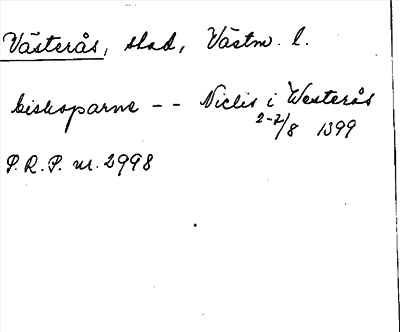 Västerås, stad, Västm. l.
biskoparne -- Niclis i Westerås
2-7/8 1399
P.R.P. nr. 2998